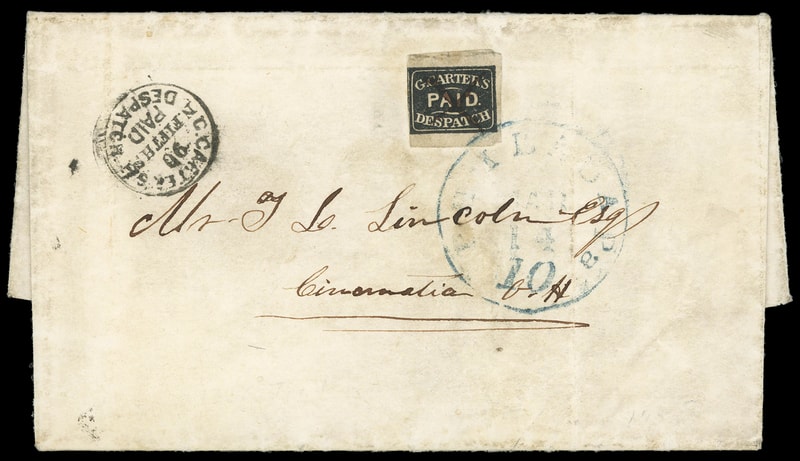 G. CARTER'S
PAID.
DESPATCH
G. CARTER'S DESPATCH
PAID
FIFTH
90
JAN
14
10
Mr. T Lo. Lincoln Esq
Cincinnatia O-H